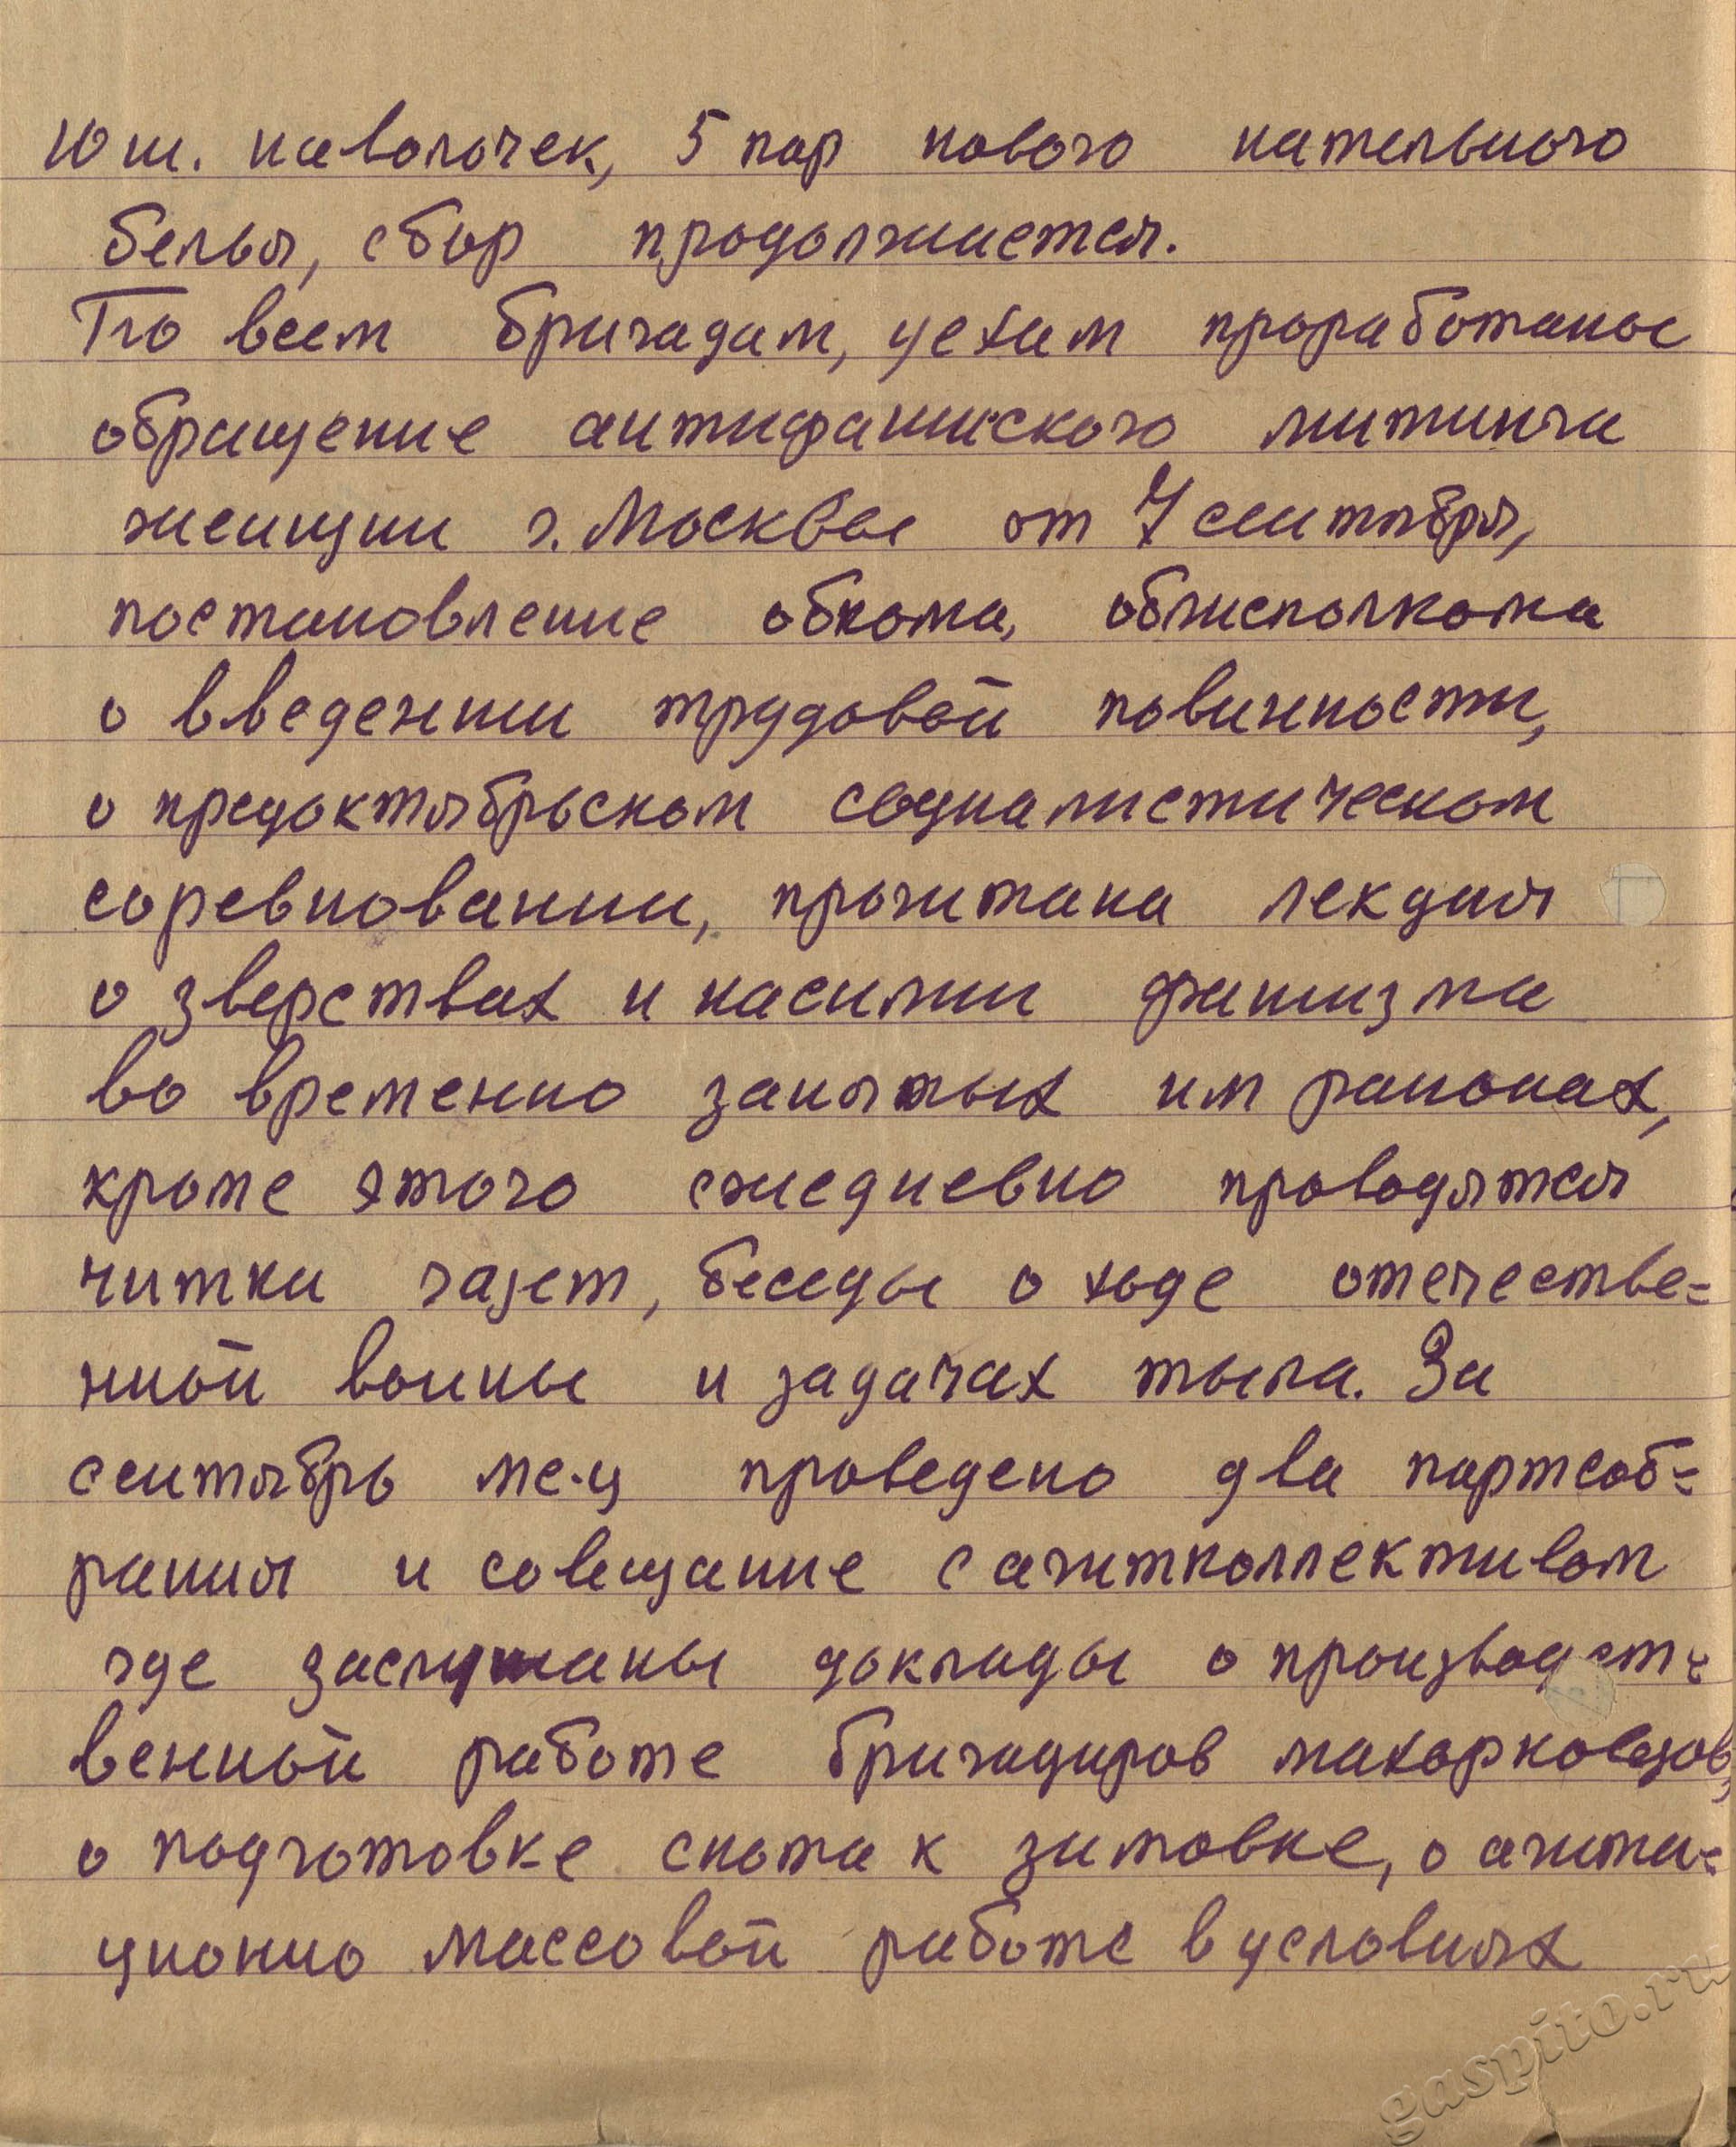 10 ш. наволочек, 5 пар нового нательного
белья, сбор продолжается.
По всем бригадам, цехам проработаные
обращение антифашиского митинга
женщин г. Москвы от 7 сентября,
постановление обкома, облисполкома
о введении трудовой повинности,
о предоктябрьском социалистическом
соревновании, прочитана лекция
о зверствах и насилии фашизма
во временно занятых им районах,
кроме этого ежедневно проводятся
читки газет, беседы о ходе отечестве=
нной войны и задачах тыла. За
сентябрь м-ц проведено два партсоб=
рания и совещание с агитколлективом
где заслушаны доклады о производст=
венной работе бригадиров махорководов,
о подготовке скота к зимовке, о агита=
ционно массовой работе в условиях
gaspito.ru